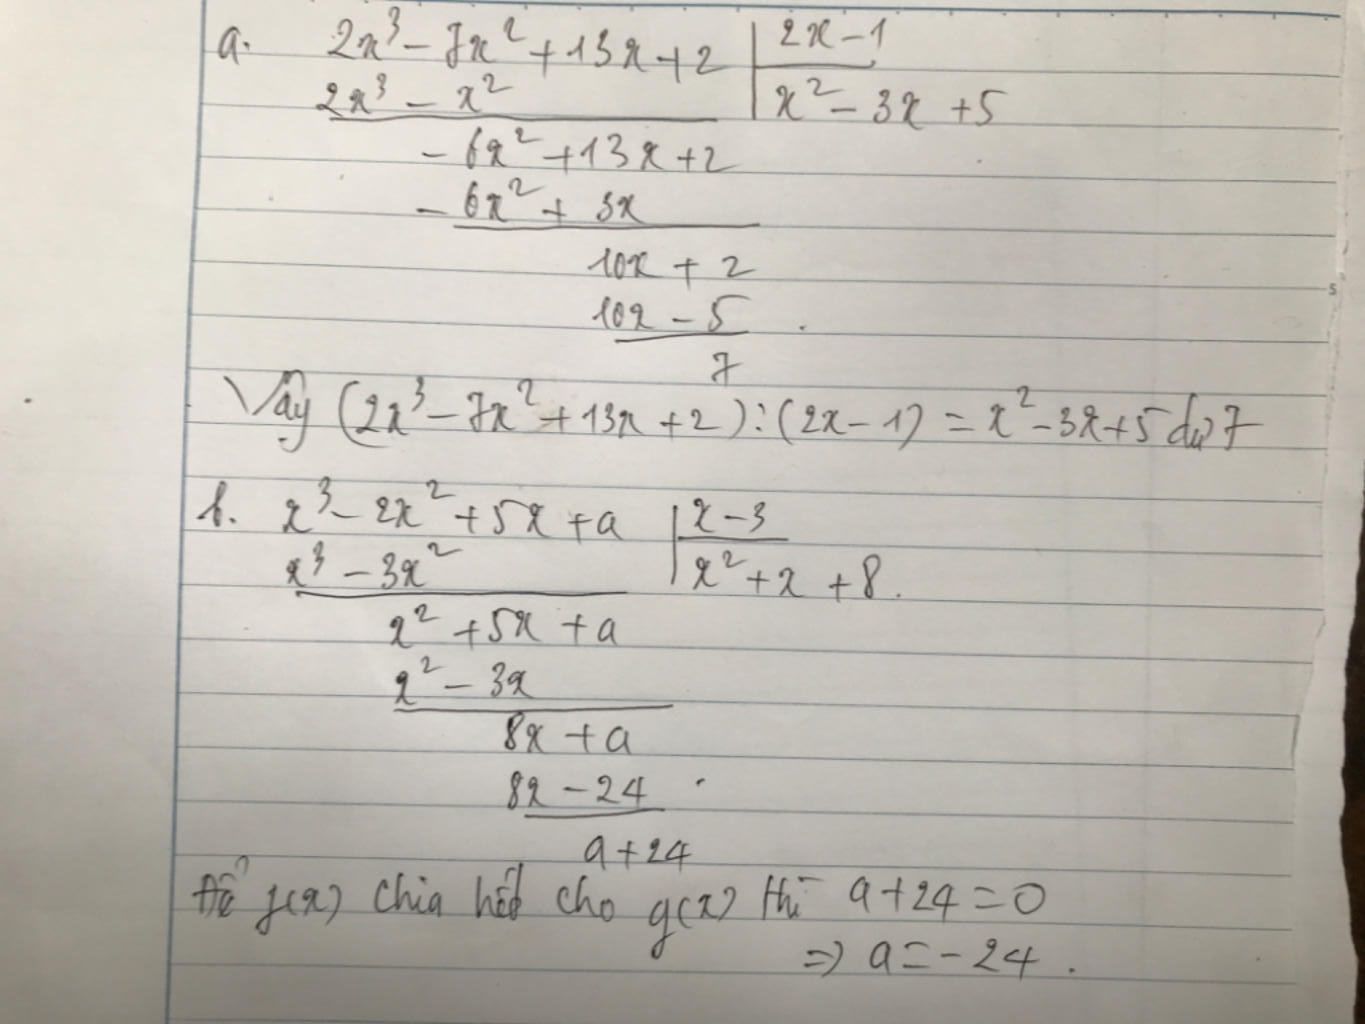 a. 2x³ - 7x² + 13x + 2 | 2x - 1
2x³ - x² | x² - 3x + 5
- 6x² + 13x + 2
- 6x² + 3x
10x + 2
10x - 5
7
Vậy (2x³ - 7x² + 13x + 2) : (2x - 1) = x² - 3x + 5 dư 7
b. x³ - 2x² + 5x + a | x - 3
x³ - 3x² | x² + x + 8.
x² + 5x + a
x² - 3x
8x + a
8x - 24
a + 24
Để f(x) chia hết cho g(x) thì a + 24 = 0
⇒ a = - 24.